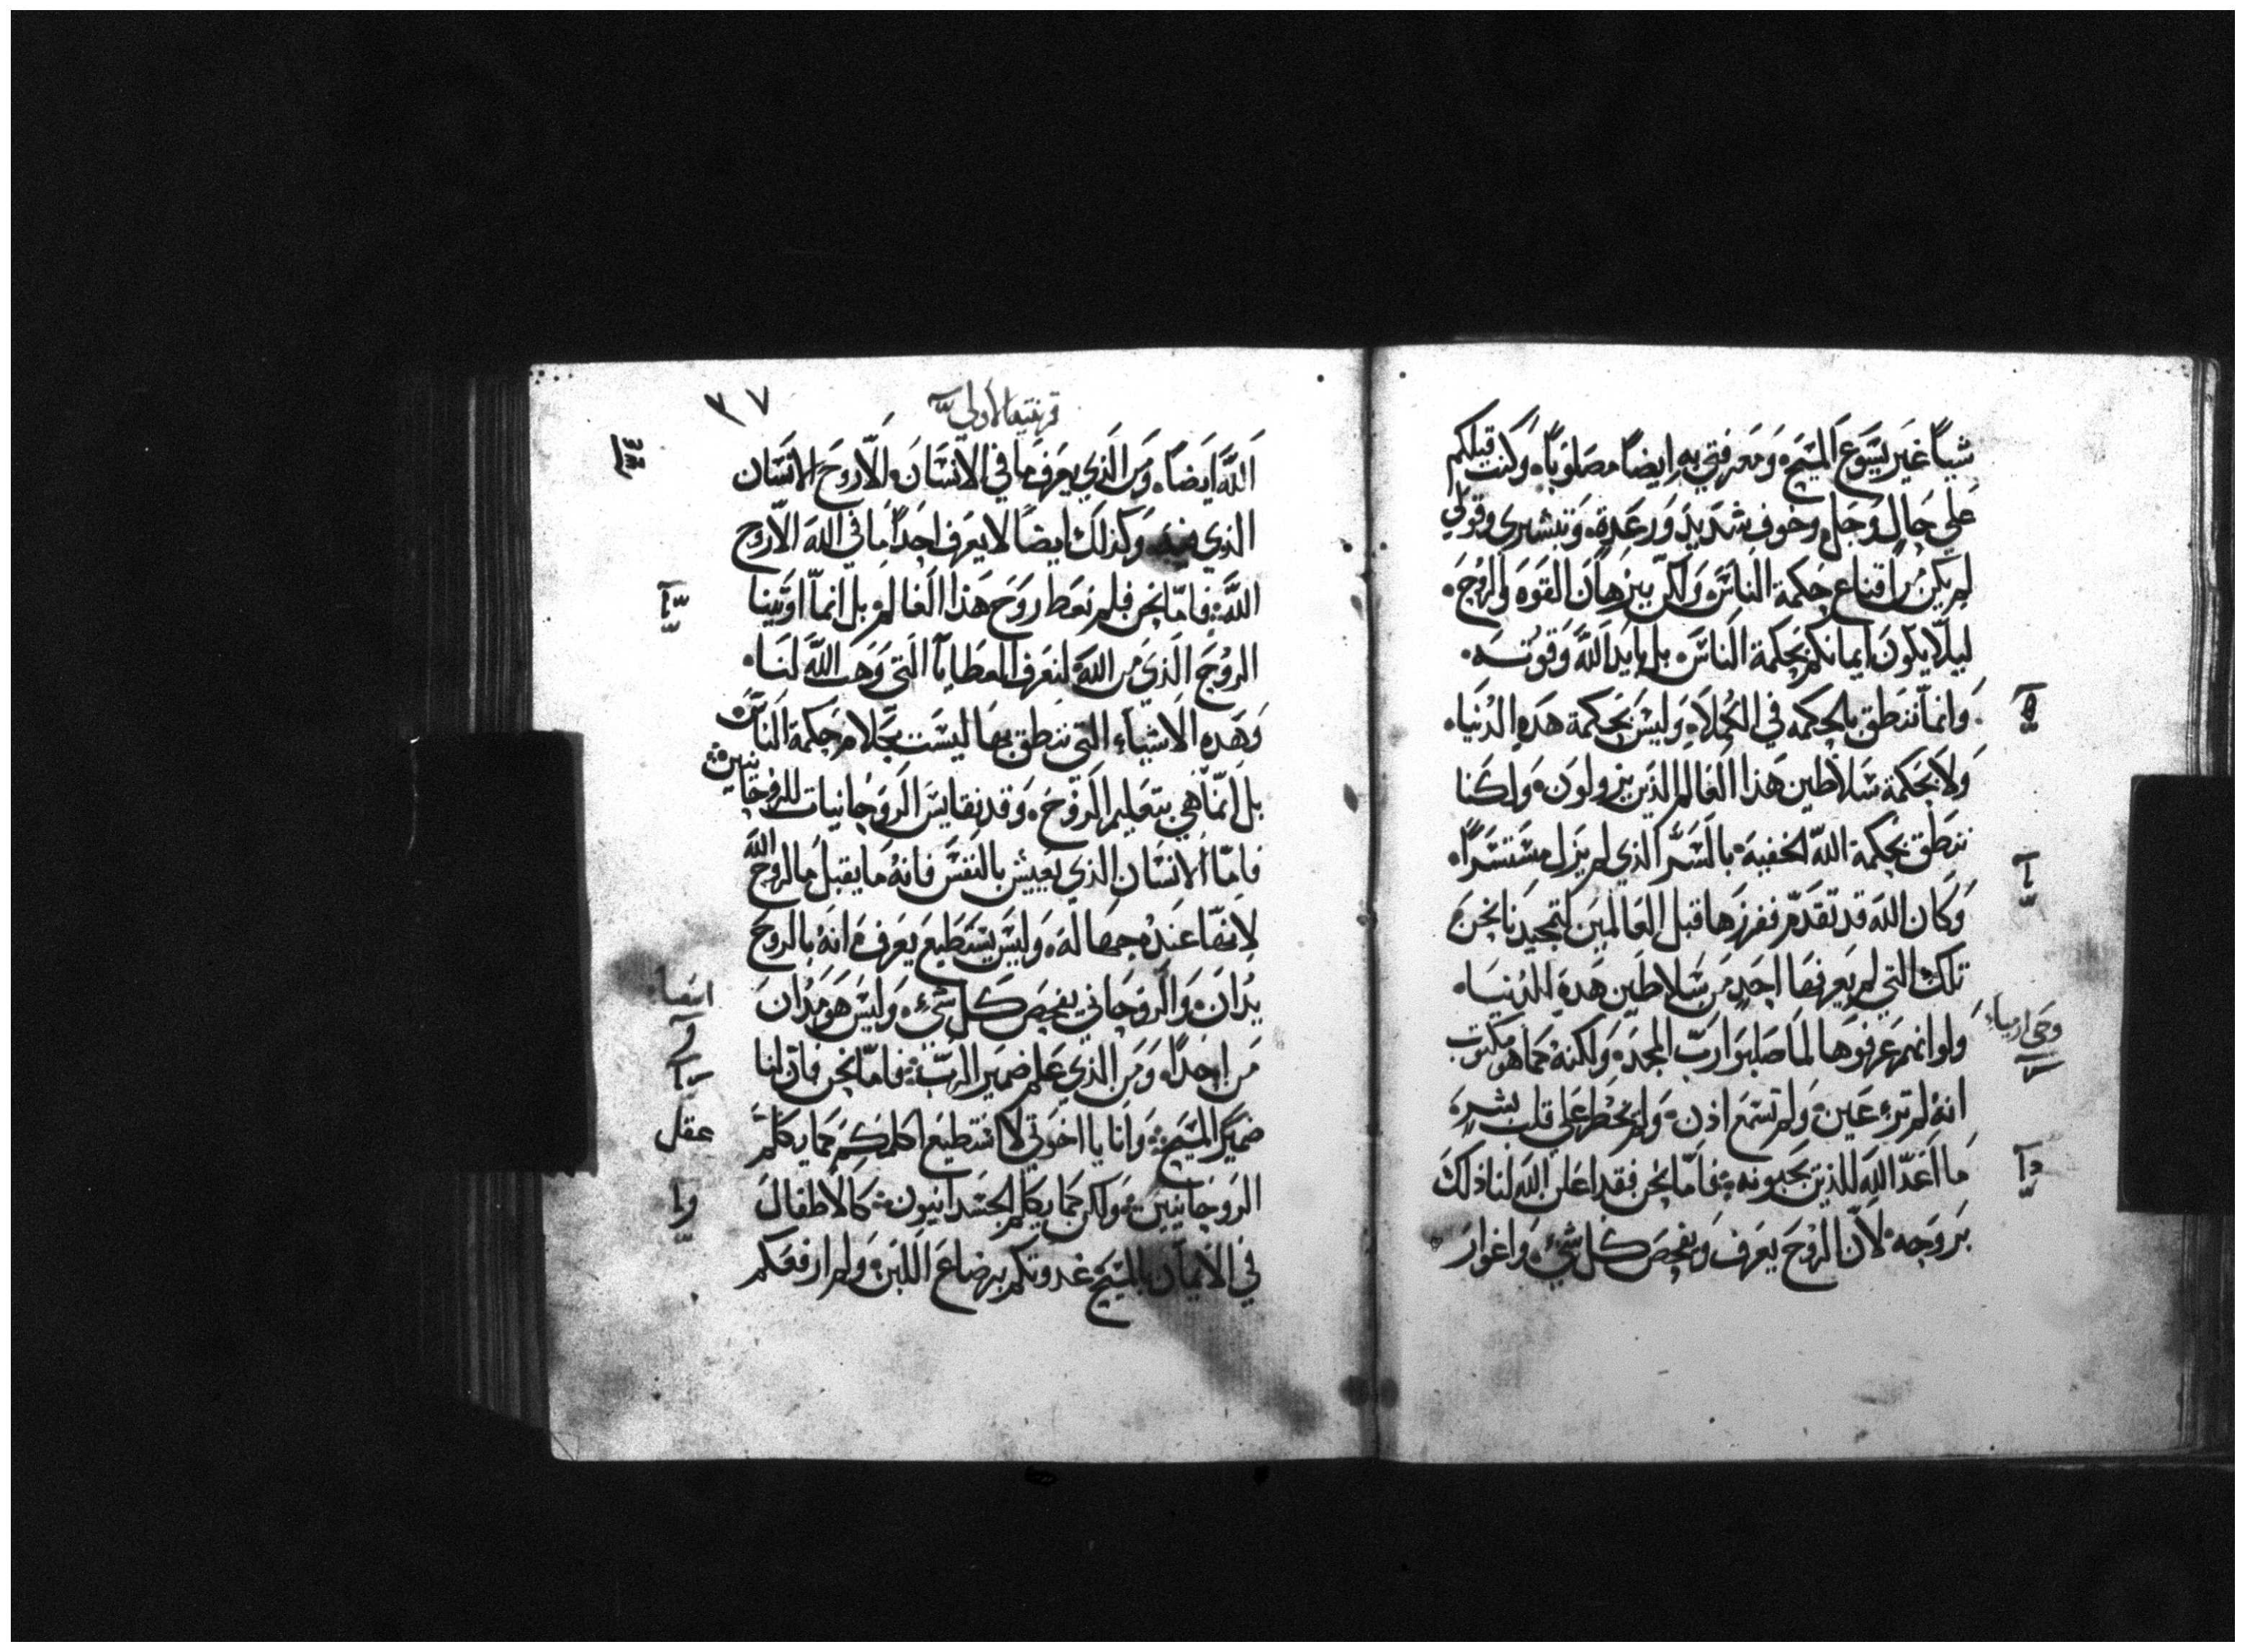 شياً غير يسوع المسيح ومعرفتي به ايضاً مصلوباً وكنت قبلكم
على حال وجل وخوف شديد ورعدة وتبشيري وقولي
لم يكن من اقناع حكمة الناس ولكن ببرهان القوه والروح
ليلا يكون ايمانكم بحكمة الناس بل بايد الله وقوته
وانما ننطق بالحكمه في الكملاء وليس بحكمة هذه الدنيا
ولا بحكمة سلاطين هذا العالم الذين يزولون ولكنا
ننطق بحكمة الله الخفية بالسر الذي لم يزل مستتراً
وكان الله قد تقدم ففرزها قبل العالمين لتمجيدنا نحن
تلك التي لم يعرفها احد من سلاطين هذه الدنيا
ولو انهم عرفوها لما صلبوا رب المجد ولكنه كما هو مكتوب
انه لم ترء عين ولم تسمع اذن ولم يخطر على قلب بشر
ما اعد الله للذين يحبونه فاما نحن فقد اعلن الله لنا ذلك
بروحه لان الروح يعرف ويفحص كل شيء واغوار
وحي ارمياء
قرنتيه الاولى
٣٧
الله ايضاً ومن الذي يعرف ما في الانسان الا روح الانسان
الذي فيه وكذلك ايضاً لا يعرف احداً ما في الله الا روح
الله فاما نحن فلم نعط روح هذا العالم بل انما اوتينا
الروح الذي من الله لنعرف العطايا التي وهب الله لنا
وهذه الاشياء التي ننطق بها ليست بكلام حكمة الناس
بل انما هي بتعليم الروح وقد نقايس الروحانيات للروحانيين
فاما الانسان الذي يعيش بالنفس فانه ما يقبل ما لروح الله
لانها عنده جهالة وليس يستطيع يعرف انه بالروح
يدان والروحاني يفحص كل شيء وليس هو مدان
من احداً ومن الذي علم ضمير الرب فاما نحن فان لنا
ضمير المسيح وانا يا اخوتي لا استطيع اكلمكم كما يكلم
الروحانيين ولكن كما يكلم الجسدانيون كالاطفال
في الايمان بالمسيح غدوتكم برضاع اللبن ولم ارفعكم
اشعيا
عقل